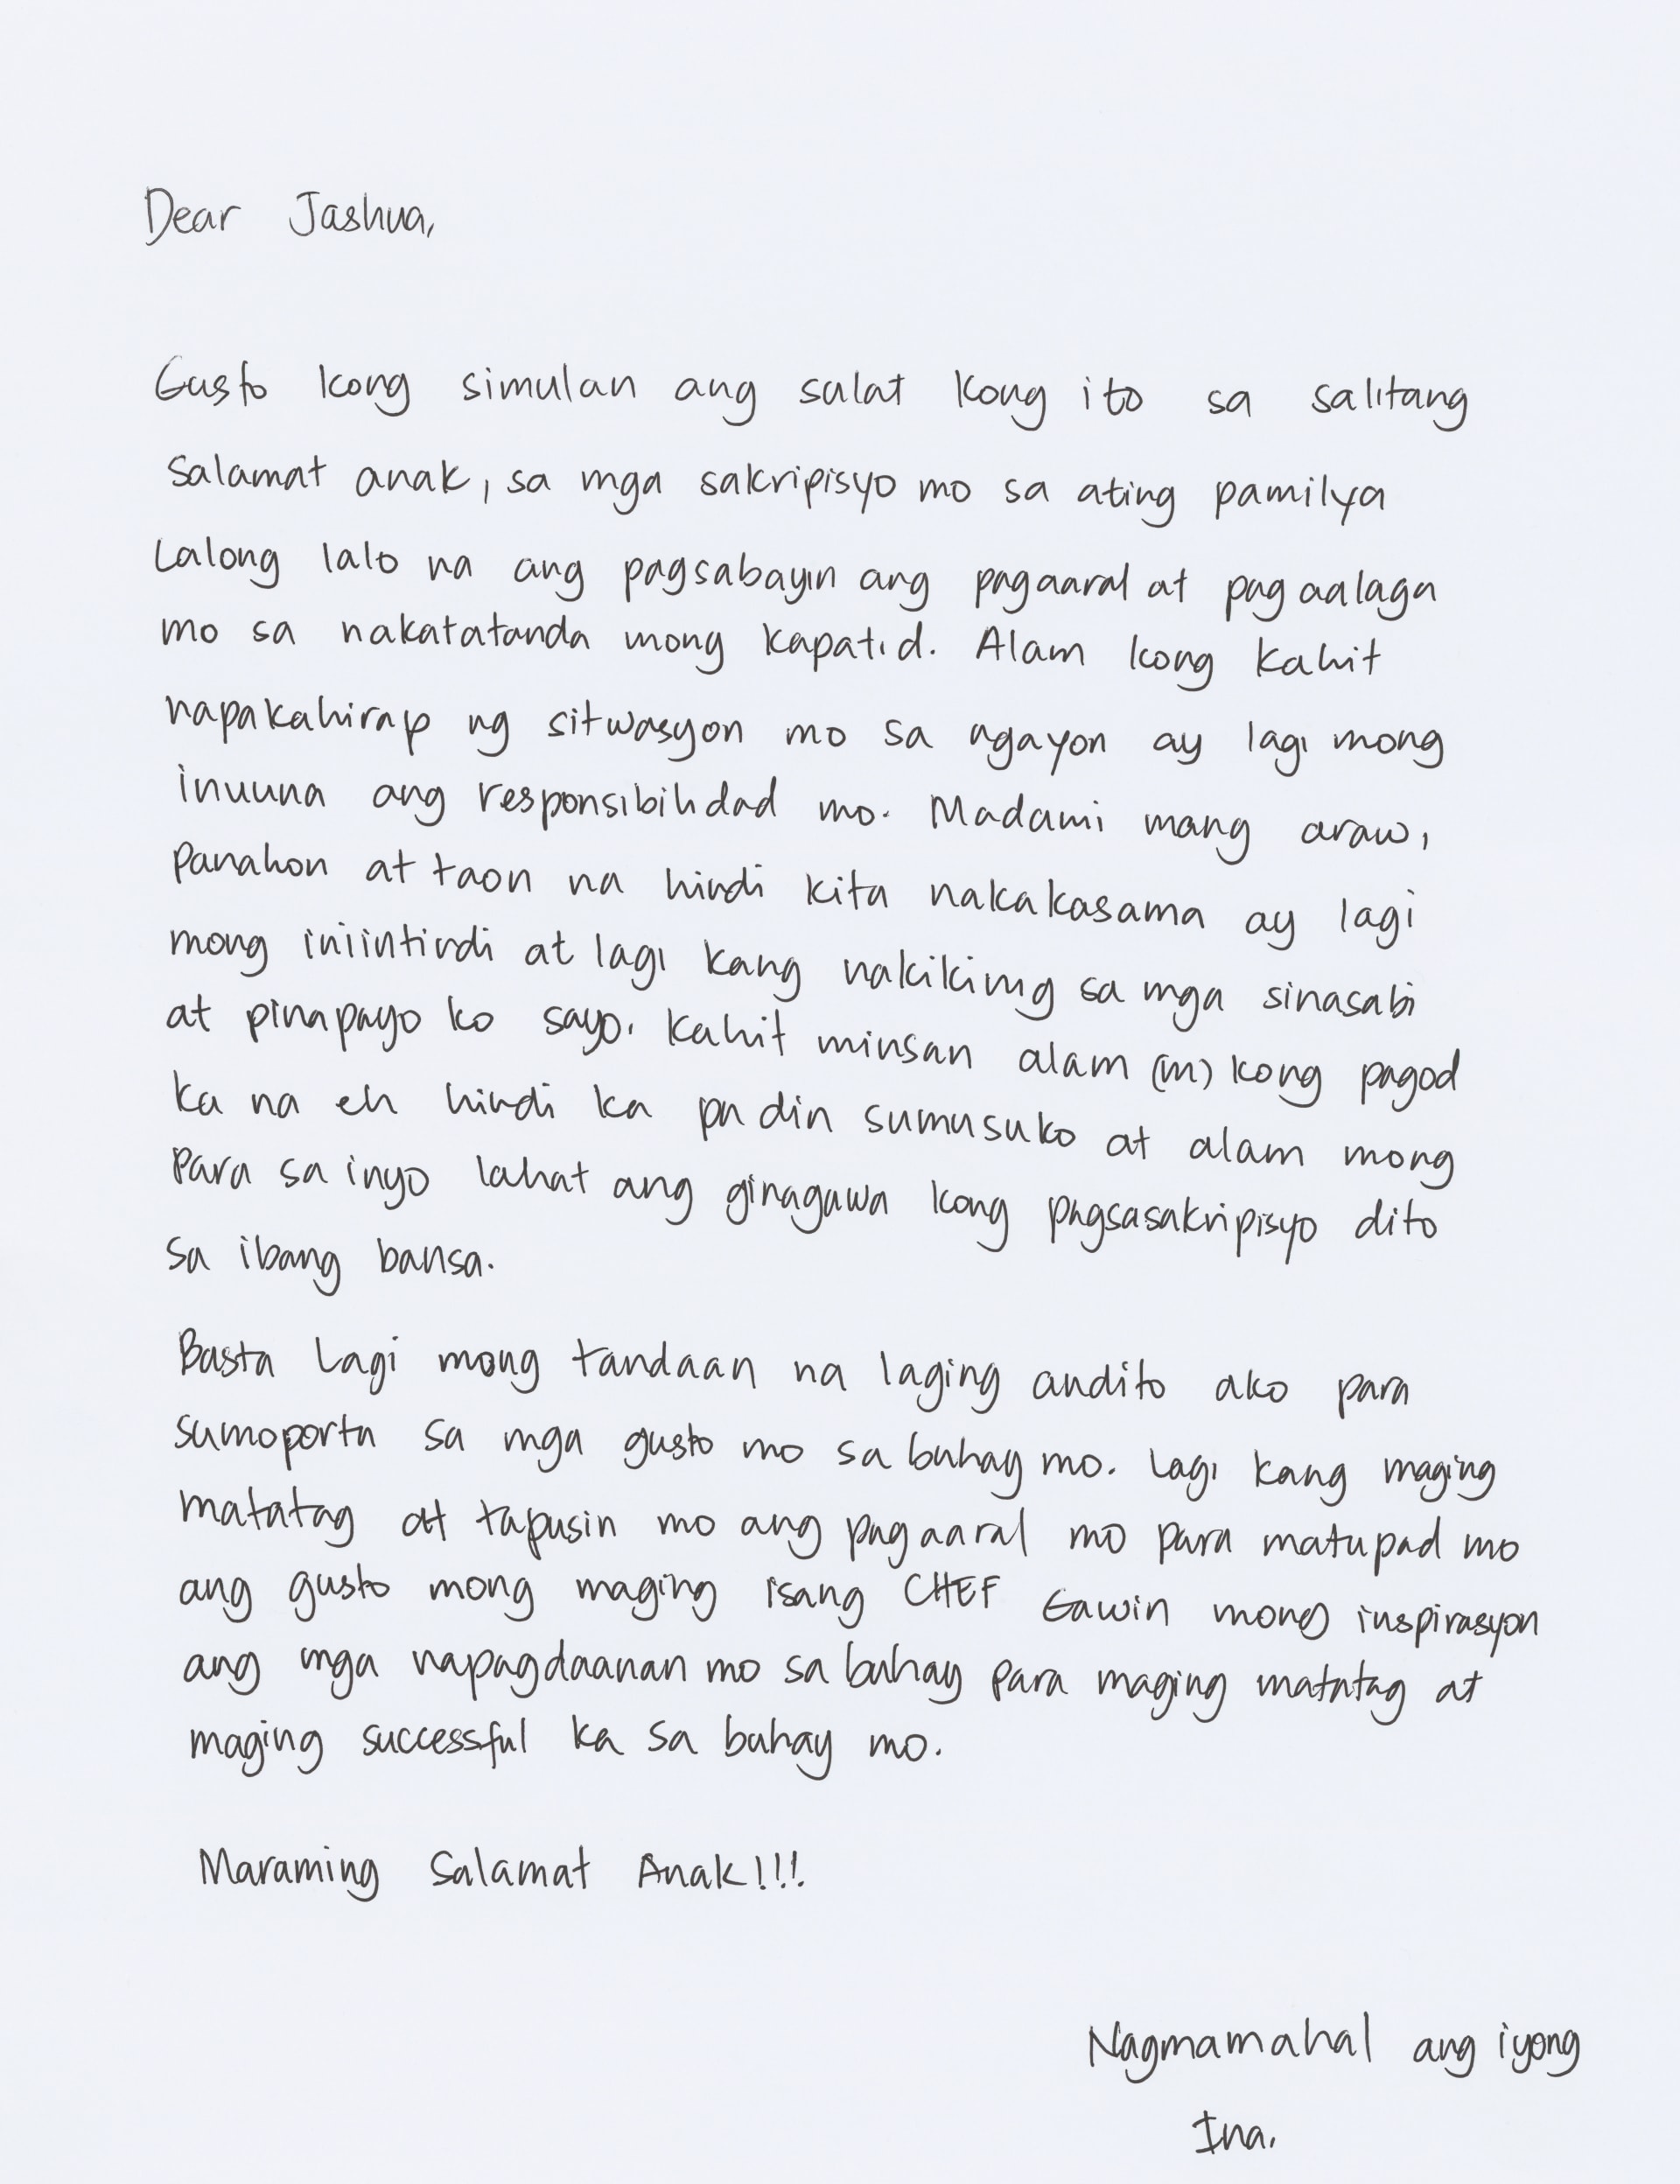 Dear Jashua,
Gusto kong simulan ang sulat kong ito sa salitang
salamat anak, sa mga sakripisyo mo sa ating pamilya
Lalong lalo na ang pagsabayin ang pagaaral at pag aalaga
mo sa nakatatanda mong kapatid. Alam kong kahit
napakahirap ng sitwasyon mo sa ngayon ay lagi mong
inuuna ang responsibilidad mo. Madami mang araw,
panahon at taon na hindi kita nakakasama ay lagi
mong iniintindi at lagi kang nakikinig sa mga sinasabi
at pinapayo ko sayo. Kahit minsan alam (m) kong pagod
ka na eh hindi ka pa din sumusuko at alam mong
para sa inyo lahat ang ginagawa kong pagsasakripisyo dito
sa ibang bansa.
Basta Lagi mong tandaan na laging andito ako para
sumoporta sa mga gusto mo sa buhay mo. Lagi kang maging
matatag at tapusin mo ang pag aaral mo para matupad mo
ang gusto mong maging isang CHEF Gawin mong inspirasyon
ang mga napagdaanan mo sa buhay para maging matatag at
maging successful ka sa buhay mo.
Maraming Salamat Anak!!!
Nagmamahal ang iyong
Ina.